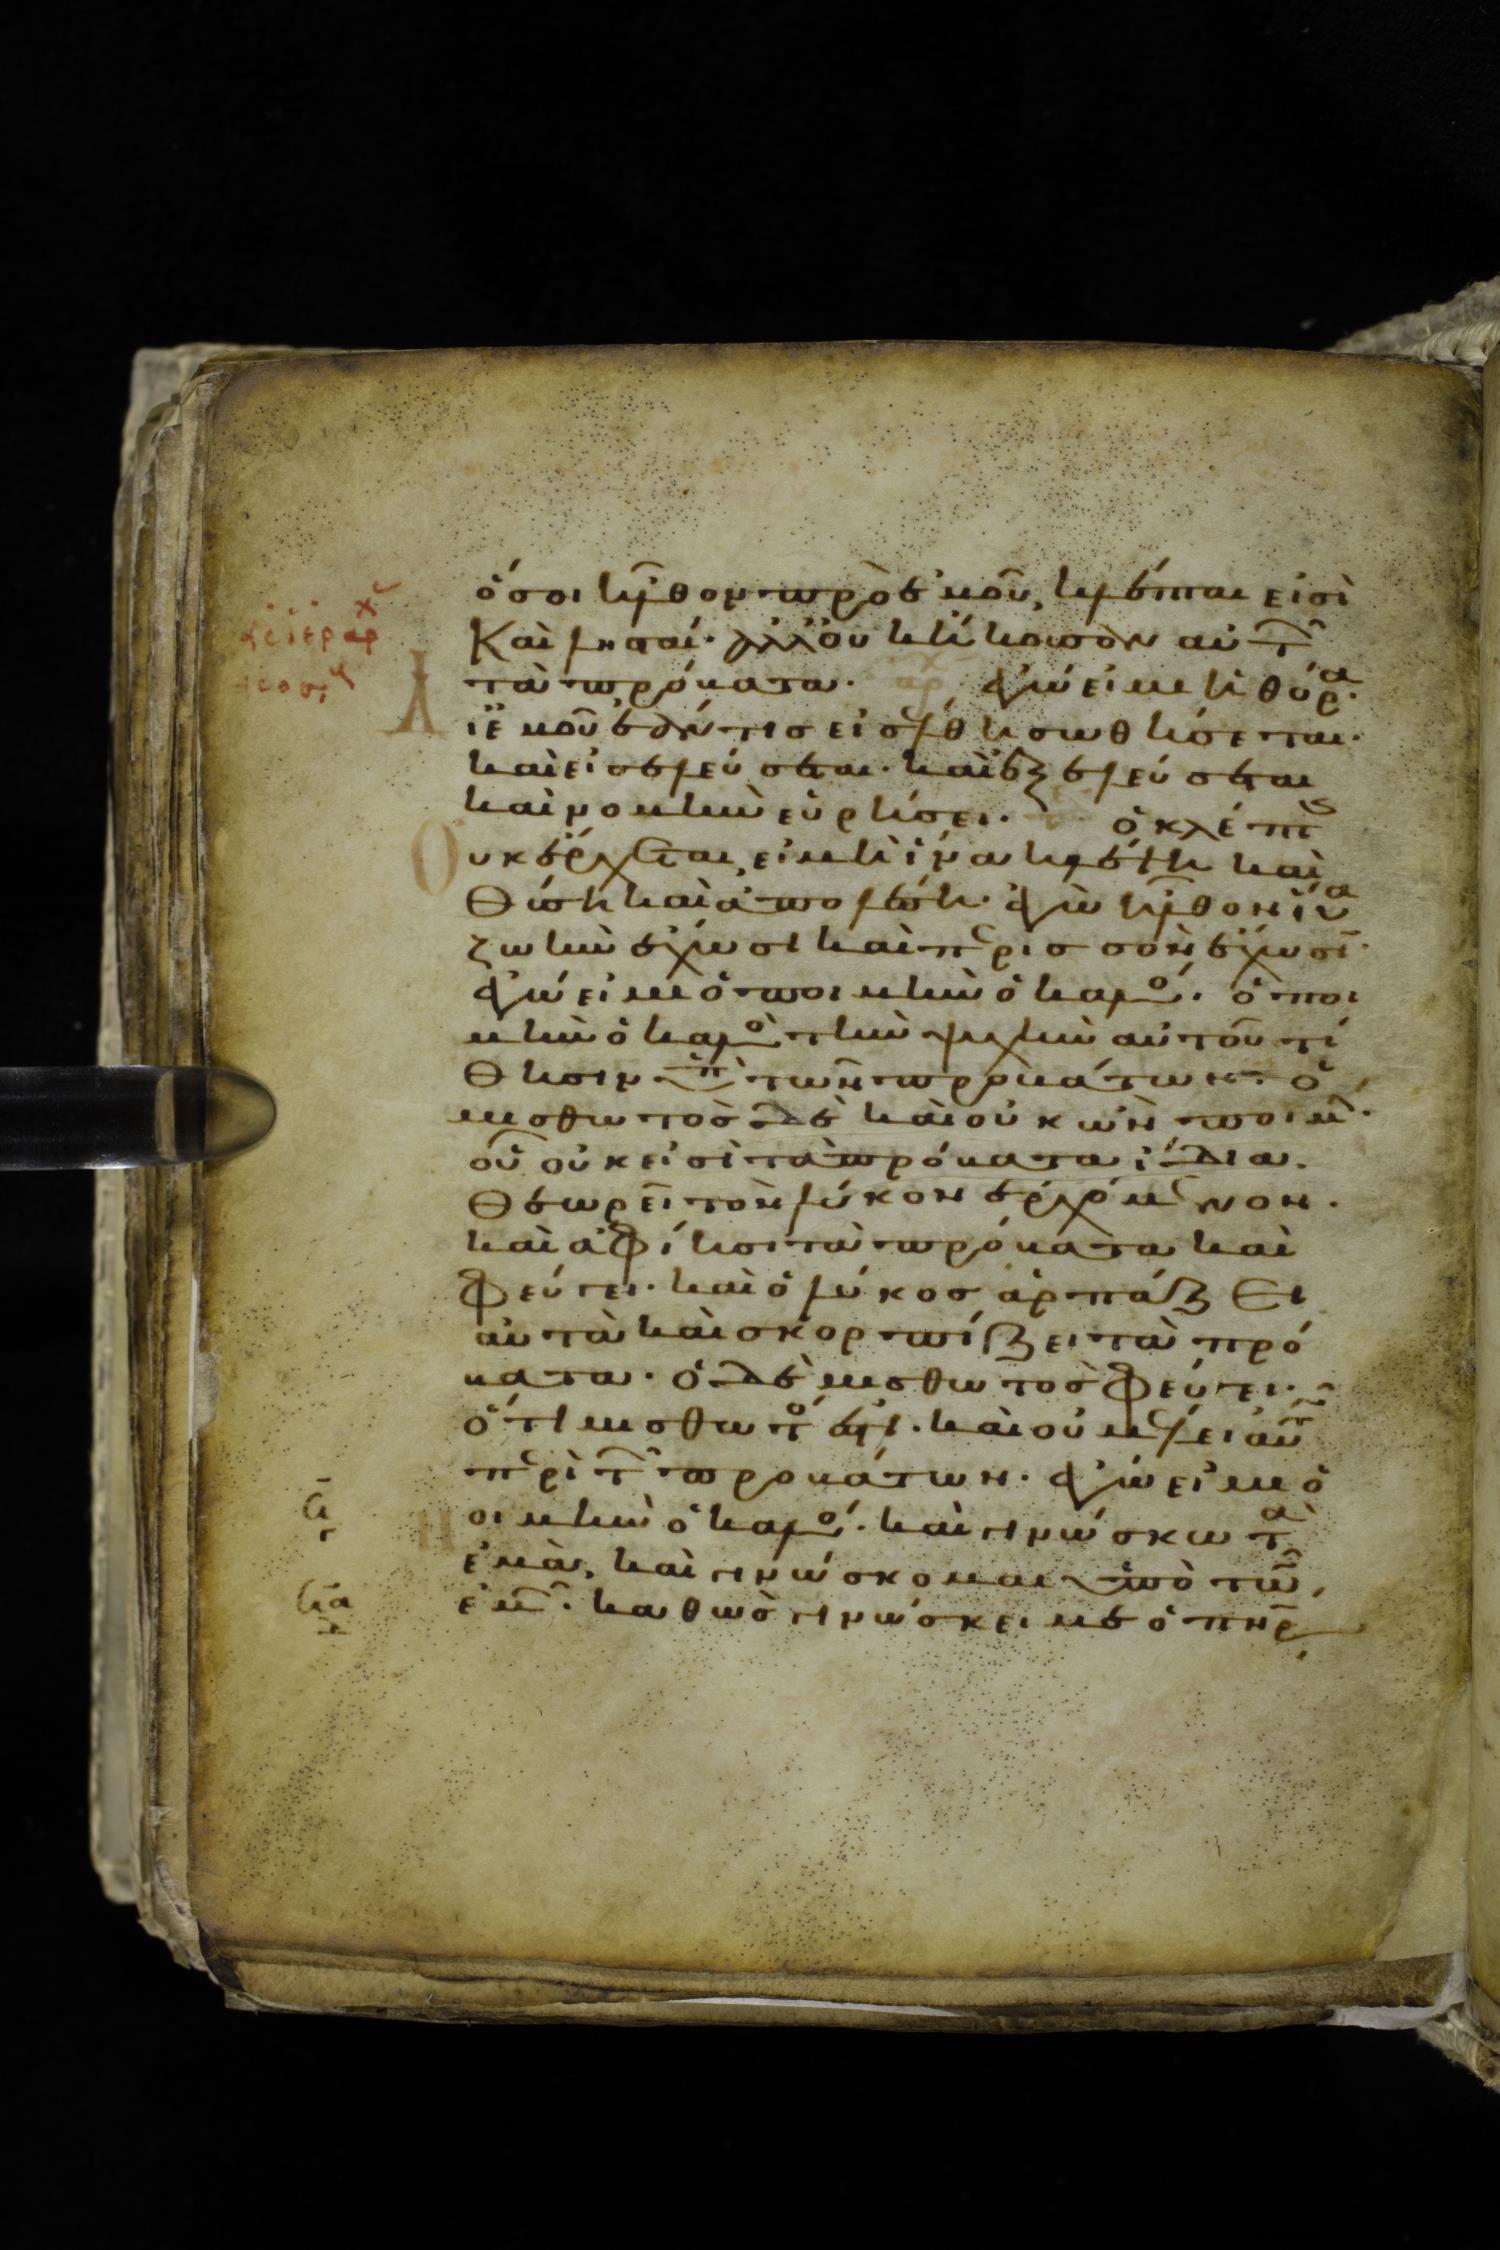 ὅσοι ἦλθον πρὸ ἐμοῦ, κλέπται εἰσὶ
καὶ λησταί· ἀλλ' οὐκ ἤκουσαν αὐτῶν
τὰ πρόβατα· ἀρχ ἐγώ εἰμι ἡ θύρα·
Δι' ἐμοῦ ἐάν τις εἰσέλθη σωθήσεται·
καὶ εἰσελεύσεται· καὶ ἐξελεύσεται
καὶ νομὴν εὑρήσει· ὁ κλέπτης
Οὐκ ἔρχεται, εἰ μὴ ἵνα κλέψη καὶ
θύση καὶ ἀπολέση· ἐγὼ ἦλθον ἵνα
ζωὴν ἔχωσι καὶ περισσὸν ἔχωσιν·
ἐγώ εἰμι ὁ ποιμὴν ὁ καλός· ὁ ποι
μὴν ὁ καλὸς τὴν ψυχὴν αὐτοῦ τί
θησιν ὑπὲρ τῶν προβάτων· ὁ
μισθωτὸς δὲ καὶ οὐκ ὢν ποιμήν·
οὗ οὐκ εἰσὶ τὰ πρόβατα ἴδια.
θεωρεῖ τὸν λύκον ἐρχόμενον·
καὶ ἀφίησι τὰ πρόβατα καὶ
φεύγει· καὶ ὁ λύκος ἁρπάζει
αὐτὰ καὶ σκορπίζει τὰ πρό
βατα· ὁ δὲ μισθωτὸς φεύγει·
ὅτι μισθωτός ἐστι· καὶ οὐ μέλει αὐτῷ
περὶ τῶν προβάτων· ἐγώ εἰμι ὁ
Ποιμὴν ὁ καλός· καὶ γινώσκω τὰ
ἐμὰ, καὶ γινώσκομαι ὑπὸ τῶν
ἐμῶν· καθὼς γινώσκει με ὁ πηρ